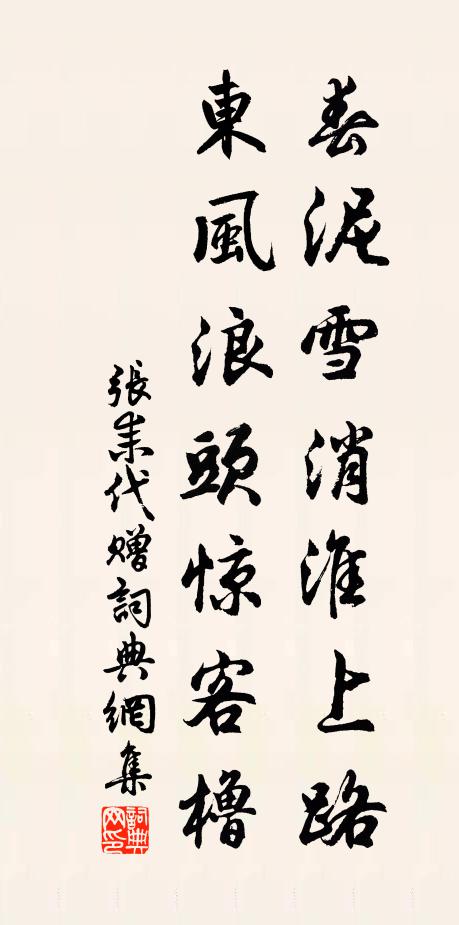 春泥雪消淮上路
東風浪頭惊客櫓
張耒代贈詞典網集
詞典網印